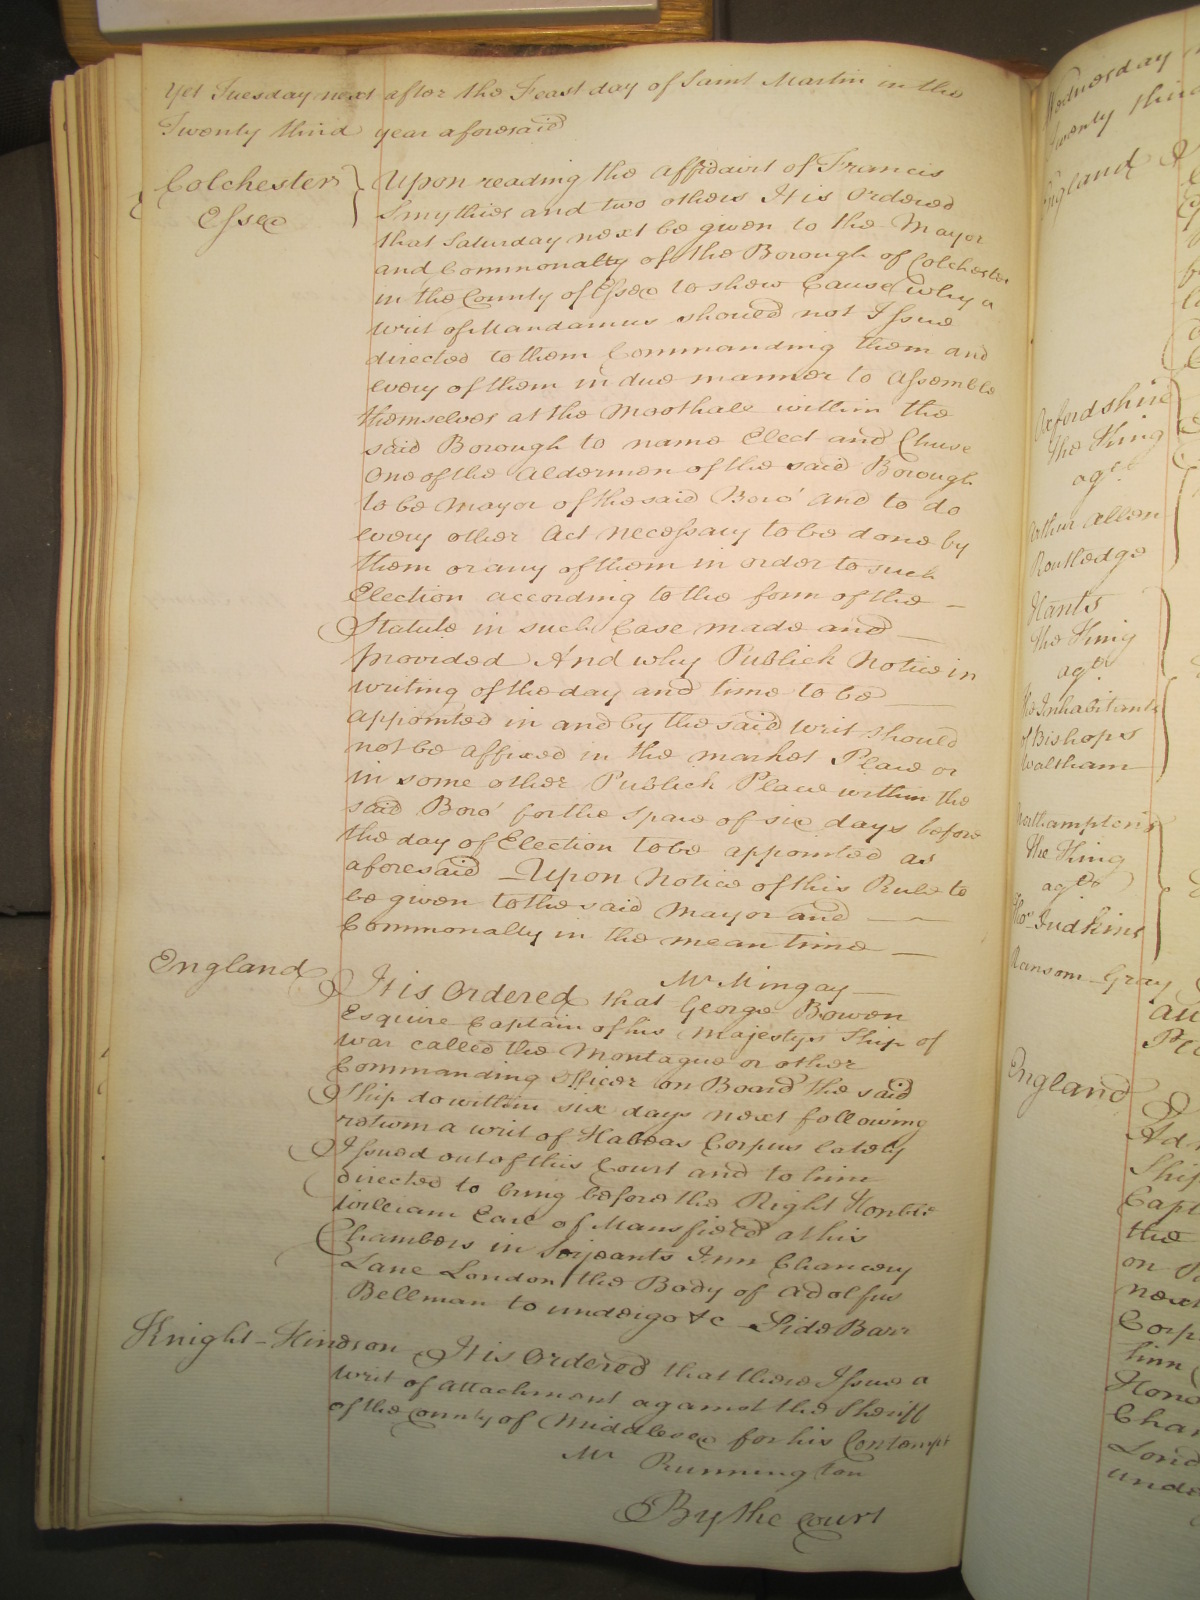 Yet Tuesday next after the Feast day of Saint Martin in the
Twenty third year aforesaid
Colchester
Essex
Upon reading the Affidavit of Francis
Smythies and two others It is Ordered
that Saturday next be given to the Mayor
and Commonalty of the Borough of Colchester
in the County of Essex to shew Cause why a
Writ of Mandamus should not Issue
directed to them Commanding them and
every of them in due manner to Assemble
themselves at the Moothall within the
said Borough to name Elect and Chuse
One of the Aldermen of the said Borough
to be Mayor of the said Boro' and to do
every other Act necessary to be done by
them or any of them in order to such
Election according to the form of the
Statute in such Case made and
provided And why Publick Notice in
writing of the day and time to be
appointed in and by the said Writ should
not be affixed in the market Place or
in some other Publick Place within the
said Boro' for the Space of six days before
the day of Election to be appointed as
aforesaid Upon Notice of this Rule to
be given to the said Mayor and
Commonalty in the mean time
Mr Mingay
England
It is Ordered that George Bowen
Esquire Captain of his Majestys Ship of
War called the Montague or other
Commanding Officer on Board the said
Ship do within six days next following
return a writ of Habeas Corpus lately
Issued out of this Court and to him
directed to bring before the Right Honble
William Earl of Mansfield at his
Chambers in Serjeants Inn Chancery
Lane London the Body of Adolfus
Bellman to undergo &c Side Barr
Knight - Hindson
It is Ordered that there Issue a
Writ of Attachment against the Sheriff
of the County of Middlesex for his Contempt
Mr Runnington
By the Court
Wednesday
Twenty third
England
Oxfordshire
the King
agt
Arthur Allen
Routledge
Hants
the King
agt
the Inhabitants
of Bishops
Waltham
Northampton
The King
agt
Thos Judkins
Ransom - Gray
England
Ship
Capt
the
on
next
Corp
him
Hono
Cham
Lond
unde